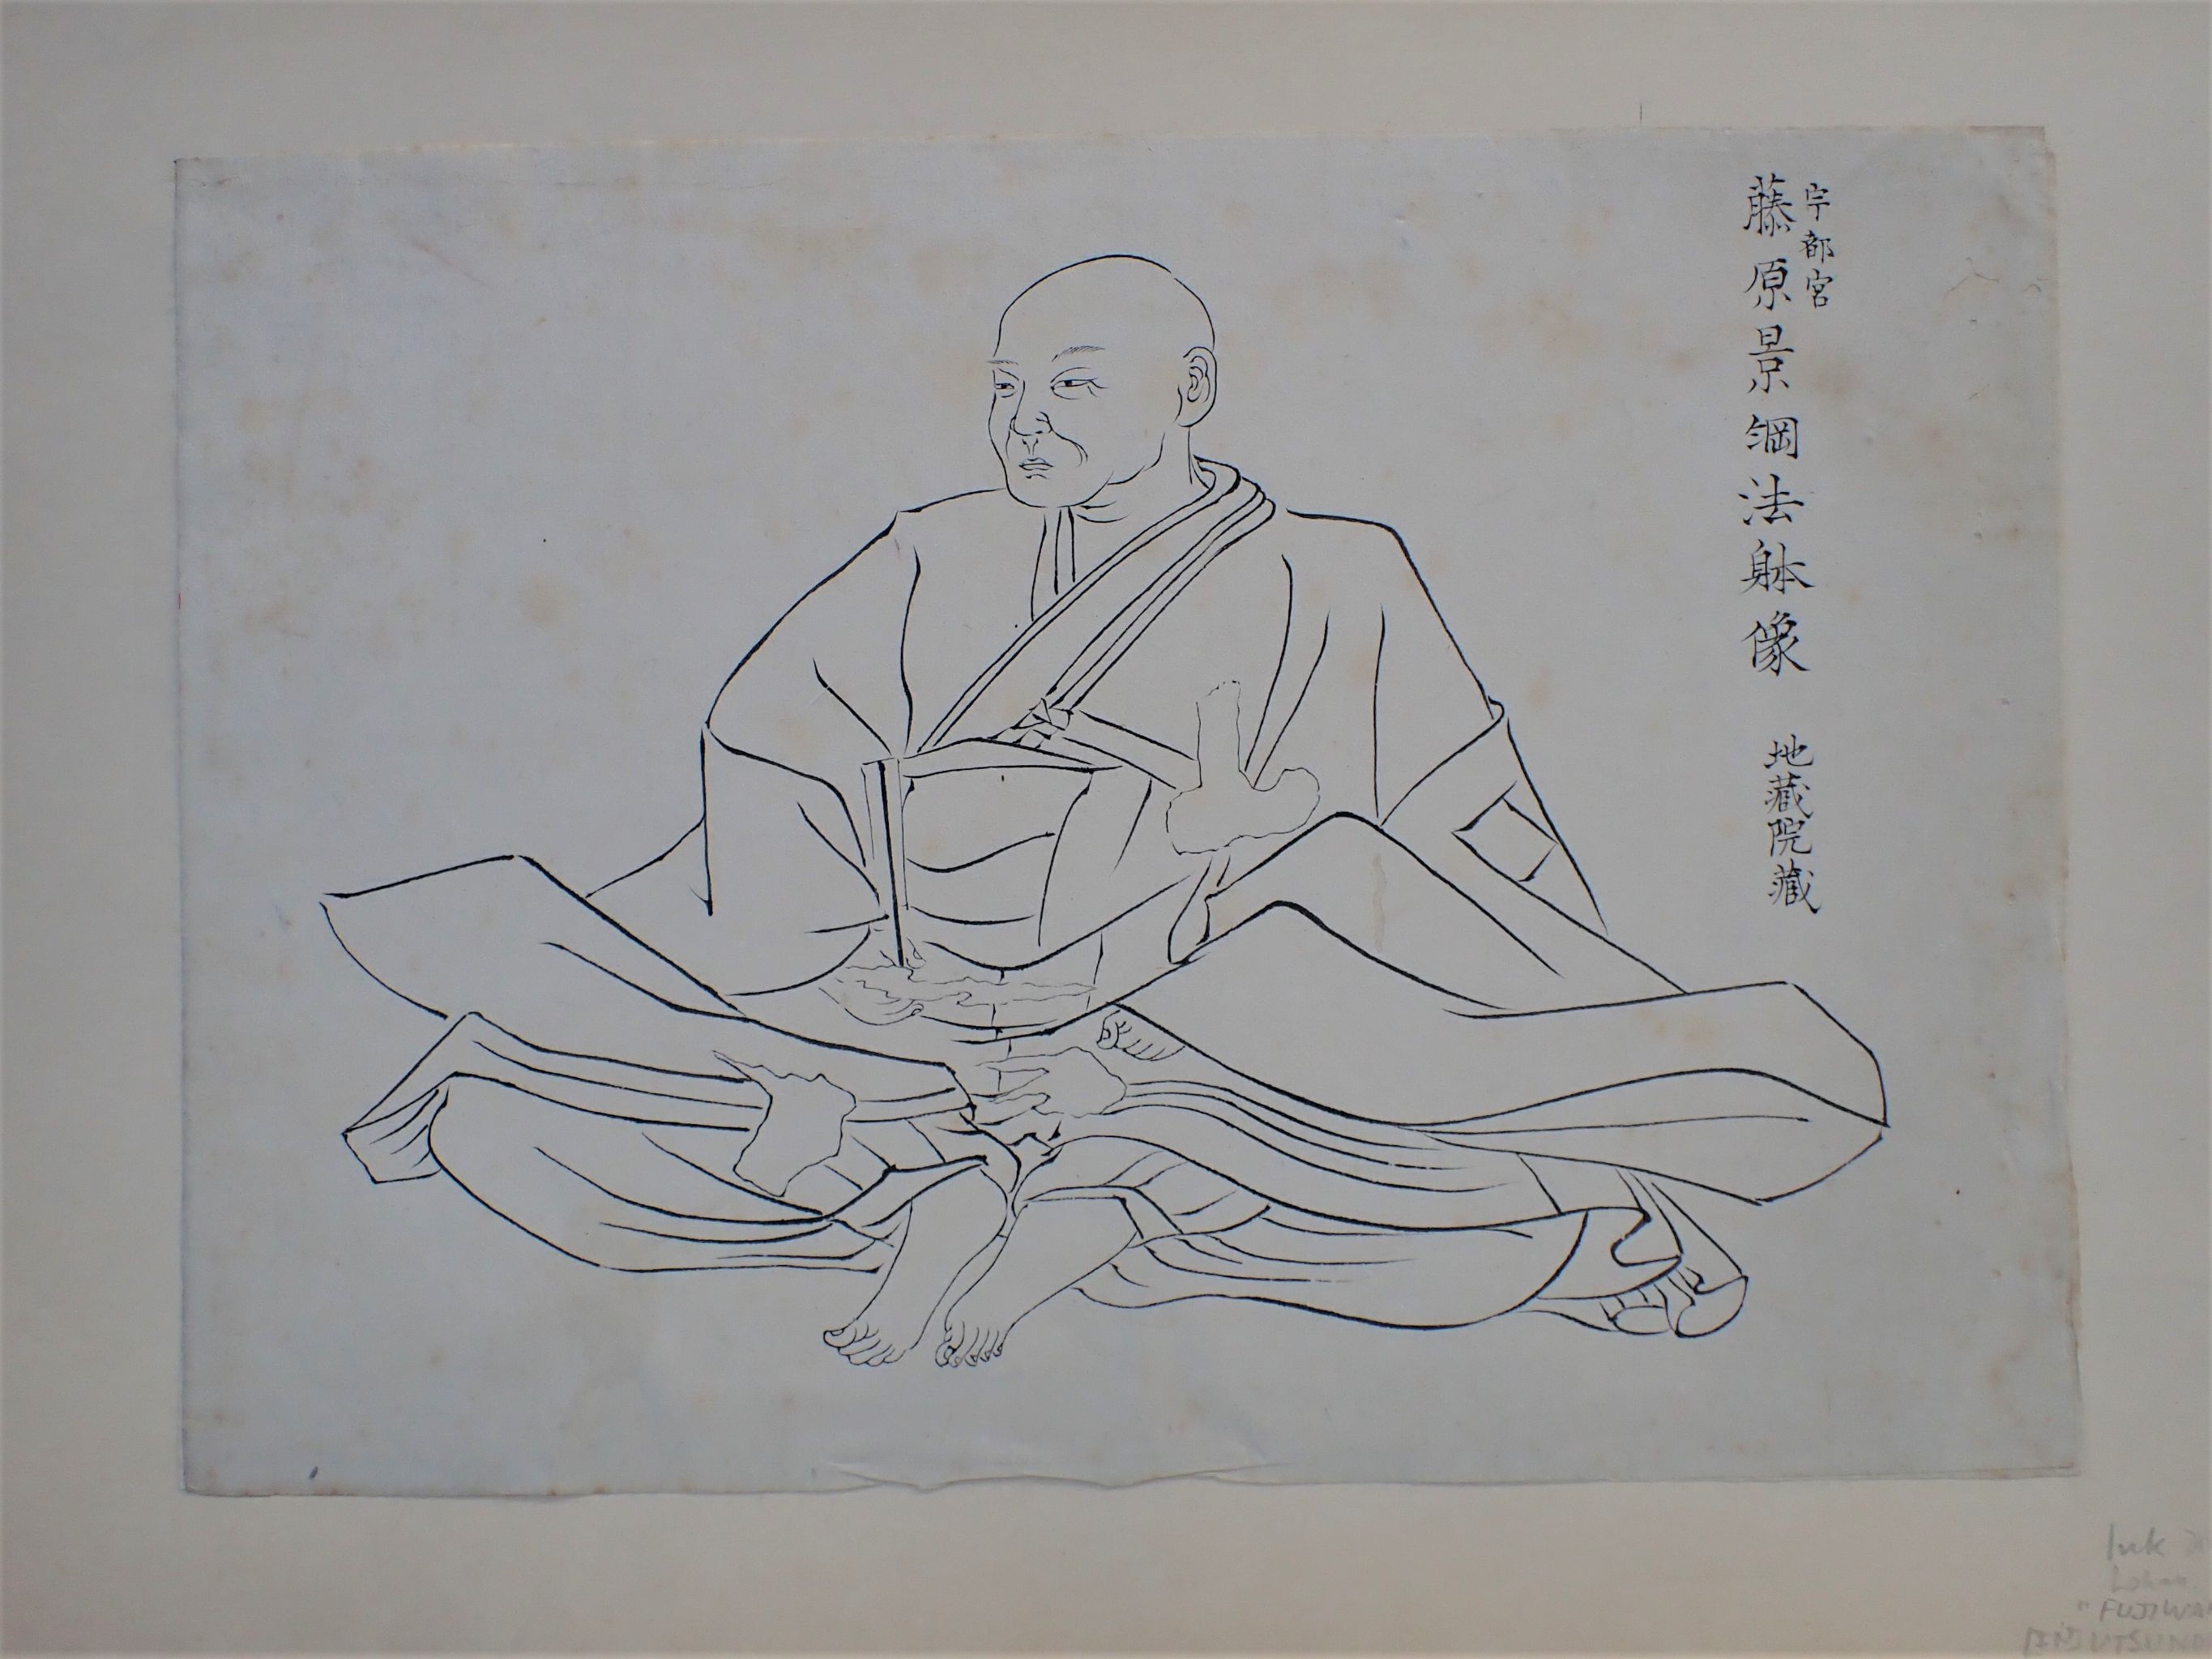 宇都宮
藤原景綱法躰像
地藏院藏
Ink
"FUJIWA
UTSUNO